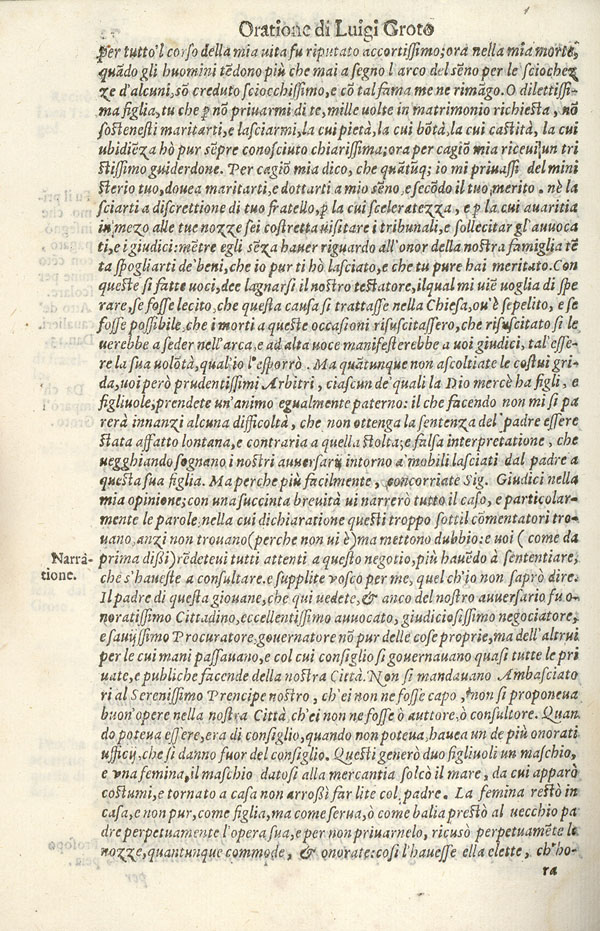 Oratione di Luigi Groto
per tutto'l corso della mia vita fu riputato accortissimo; ora nella mia morte,
quãdo gli huomini tẽdono più che mai a segno l'arco del sẽno per le sciochez
ze d'alcuni, sõ creduto sciocchissimo, e cõ tal fama me ne rimãgo. O dilettissi-
ma figlia, tu che p nõ privarmi di te, mille volte in matrimonio richiesta, nõ
sostenesti maritarti, e lasciarmi, la cui pietà, la cui bõtà, la cui castità, la cui
ubidiẽza hò pur sẽpre conosciuto chiarissima; ora per cagiõ mia ricevi un tri
stissimo guiderdone. Per cagiõ mia dico, che quãtũq; io mi privassi del mini
sterio tuo, dovea maritarti, e dottarti a mio sẽno, e secõdo il tuo merito. nè la
sciarti a discrettione di tuo fratello, p la cui sceleratezza, e p la cui avaritia
in mezo alle tue nozze sei costretta visitare i tribunali, e sollecitar gl'avvoca
ti, e i giudici: mẽtre egli sẽza haver riguardo all'onor della nostra famiglia tẽ
ta spogliarti de' beni, che io pur ti hò lasciato, e che tu pure hai meritato. Con
queste si fatte voci, dee lagnarsi il nostro testatore, ilqual mi viẽ voglia di spe
rare, se fosse lecito, che questa causa si trattasse nella Chiesa, ov'è sepelito, e se
fosse possibile, che i morti a queste occasioni risuscitassero, che risuscitato si le
verebbe a seder nell'arca, e ad alta voce manifesterebbe a voi giudici, tal'esse-
re la sua volõtà, qual io l'esporrò. Ma quãtunque non ascoltiate le costui gri-
da, voi però prudentissimi Arbitri, ciascun de' quali la Dio mercè ha figli, e
figlivole, prendete un'animo egualmente paterno: il che facendo non mi si pa
rerà innanzi alcuna difficoltà, che non ottenga la sentenza del padre essere
stata affatto lontana, e contraria a quella stolta, e falsa interpretatione, che
vegghiando sognano i nostri avversarij intorno a mobili lasciati dal padre a
questa sua figlia. Ma perche più facilmente, concorriate Sig. Giudici nella
mia opinione; con una succinta brevità vi narrerò tutto il caso, e particolar-
mente le parole, nella cui dichiaratione questi troppo sottil cõmentatori tro-
vano, anzi non trovano (perche non vi è) ma mettono dubbio: e voi (come da
Narra-
tione.
prima dißi) rẽdetevi tutti attenti a questo negotio, più havẽdo à sententiare,
che s'haveste a consultare. e supplite vosco per me, quel ch'io non saprò dire.
Il padre di questa giovane, che qui vedete, & anco del nostro avversario fu o-
noratissimo Cittadino, eccellentissimo avvocato, giudiciosissimo negociatore,
e savijssimo Procuratore, governatore nõ pur delle cose proprie, ma dell'altrui
per le cui mani passavano, e col cui consiglio si governavano quasi tutte le pri
vate, e publiche facende della nostra Città. Non si mandavano Ambasciato
ri al Serenissimo Prencipe nostro, ch'ei non ne fosse capo, non si proponeva
buon'opere nella nostra Città, ch'ei non ne fosse ò auttore, ò consultore. Quan
do poteva essere, era di consiglio, quando non poteva, havea un de più onorati
ufficij, che si danno fuor del consiglio. Questi generò duo figliuoli un maschio,
e una femina, il maschio datosi alla mercantia solcò il mare, da cui apparò
costumi, e tornato a casa non arroßi far lite col padre. La femina restò in
casa, e non pur, come figlia, ma come serva, ò come balia prestò al vecchio pa
dre perpetuamente l'opera sua, e per non privarnelo, ricusò perpetuamẽte le
nozze, quantunque commode, & onorate: così l'havesse ella elette, ch'ho-
ra